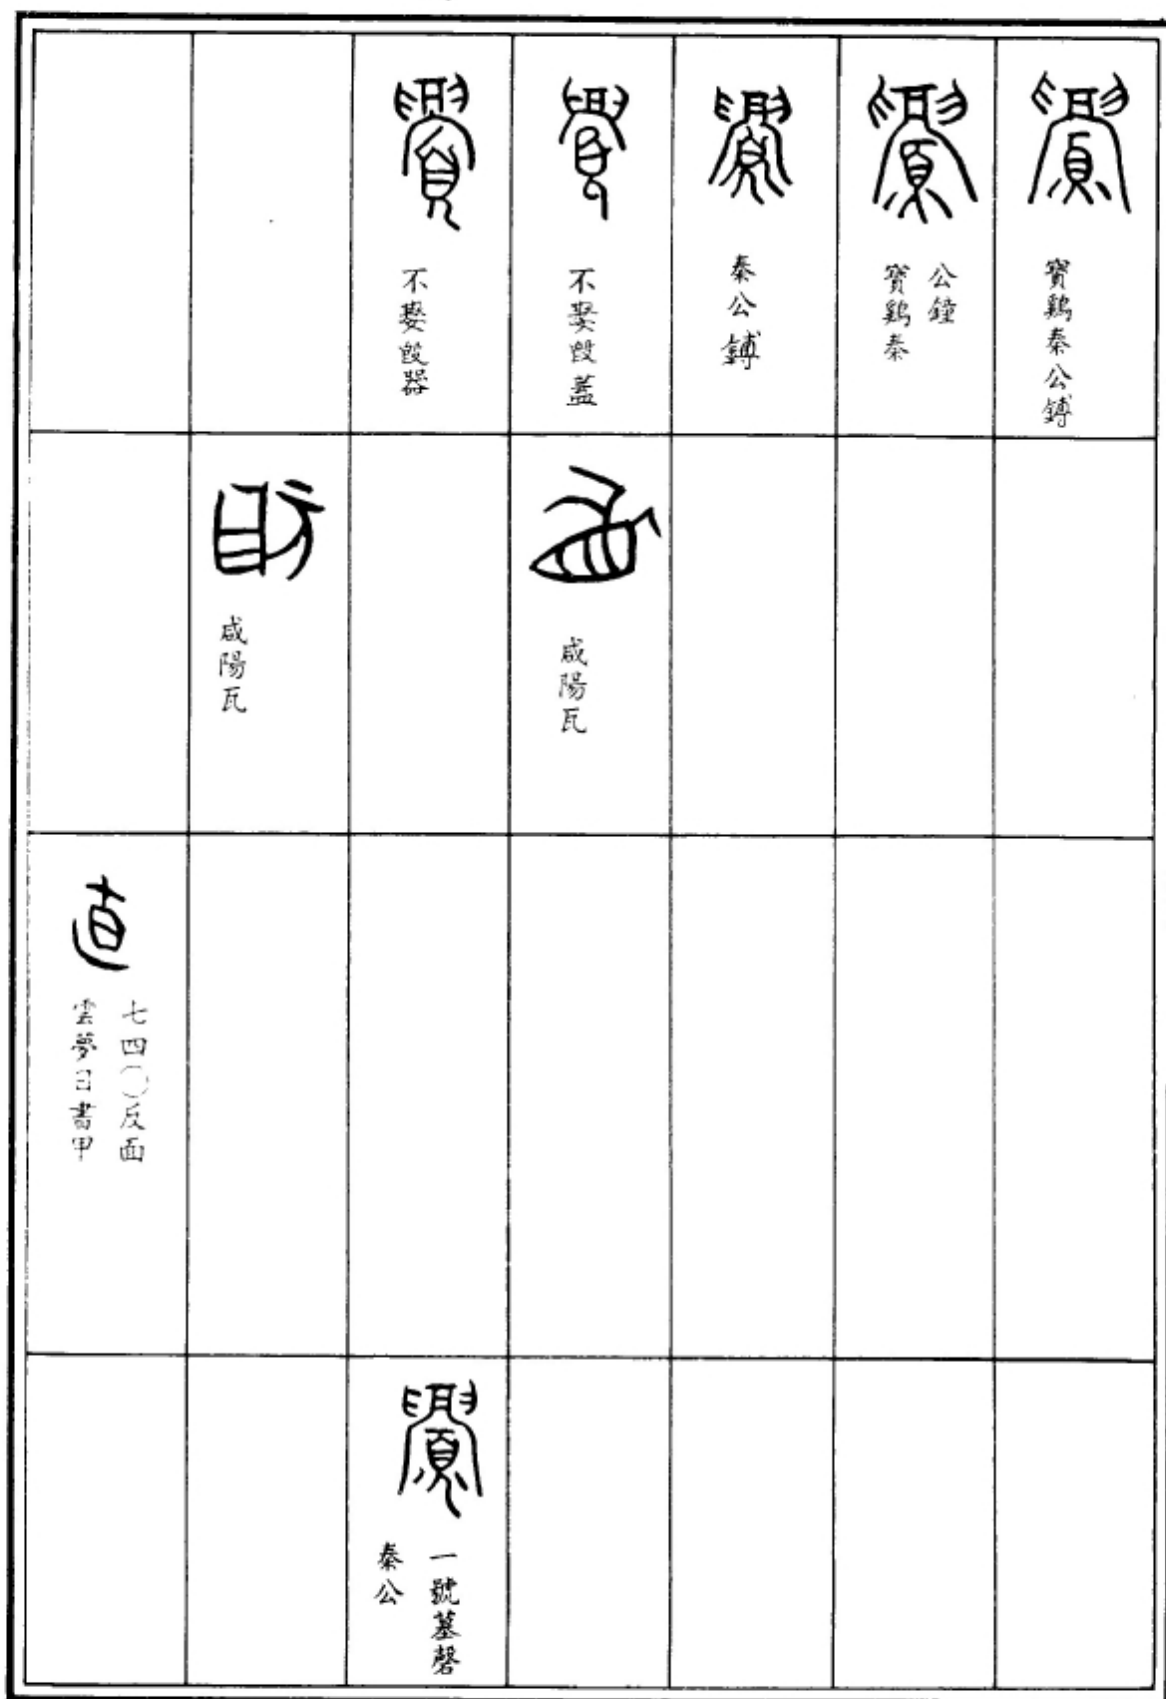 寶鷄秦公鎛
寶鷄秦
公鐘
秦公鎛
不𡢁𣪘蓋
不𡢁𣪘器
咸陽瓦
咸陽瓦
直
雲夢日書甲
七四〇反面
秦公
一號墓磬